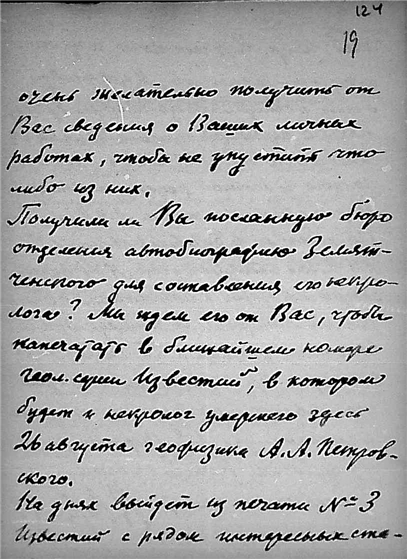 124
19
очень желательно получить от
Вас сведения о Ваших личных
работах, чтобы не упустить что
либо из них.
Получили ли Вы посланную бюро
отделения автобиографию Земят-
ченского для составления его некро-
лога? Мы ждем его от Вас, чтобы
напечатать в ближайшем номере
геол. серии Известий", в котором
будет и некролог умершего здесь
26 августа геофизика А. А. Петров-
ского.
На днях выйдет из печати № 3
Известий с рядом интересных ста-